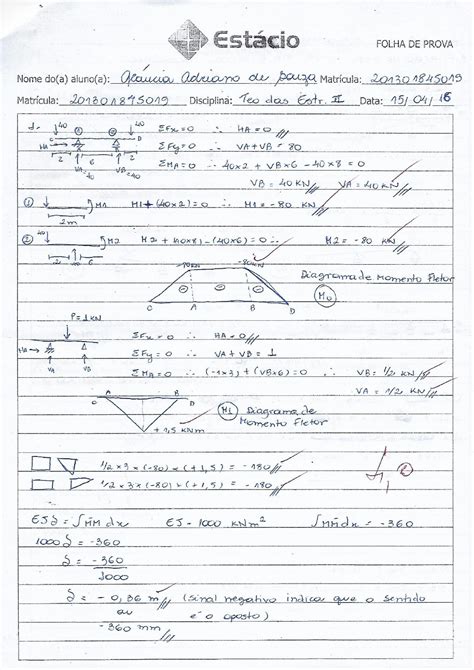 Estácio
FOLHA DE PROVA
Nome do(a) aluno(a): Gláucia Adriano de Souza Matrícula: 201301845019
Matrícula: 201301845019 Disciplina: Teo das Estr. II Data: 15/04/16
1. 40 40 ΣFx=0 ∴ HA=0
C A B D
HA ΣFy=0 ∴ VA+VB=0
2 6 2 ΣMA=0 ∴ 40x2 + VBx6 - 40x8 = 0
VA=40 VB=40 VB = 40 KN VA = 40 KN
① 40 M1 M1+(40x2)=0 ∴ M1= -80 KN
2m
② M2 M2 + (40x8)-(40x6)=0 ∴ M2 = -80 KN
2 6
-80KN
Diagrama de Momento Fletor
C A B D M0
P=1KN
ΣFx=0 ∴ HA=0
HA ΣFy=0 ∴ VA+VB=1
VA VB ΣMA=0 ∴ -(1x3)+(VBx6)=0 ∴ VB= 1/2 KN
VA= 1/2 KN
C A B D
M1 Diagrama de
Momento Fletor
+1,5 KNm
1/2x3x(-80)x(+1,5) = -180
1/2x3x(-80)x(+1,5) = -180
EJδ = ∫MM̄dx EJ=1000 KNm² ∫MM̄dx = -360
1000δ = -360
δ = -360
1000
δ = -0,36 m (Sinal negativo indica que o sentido
ou é o oposto)
-360 mm